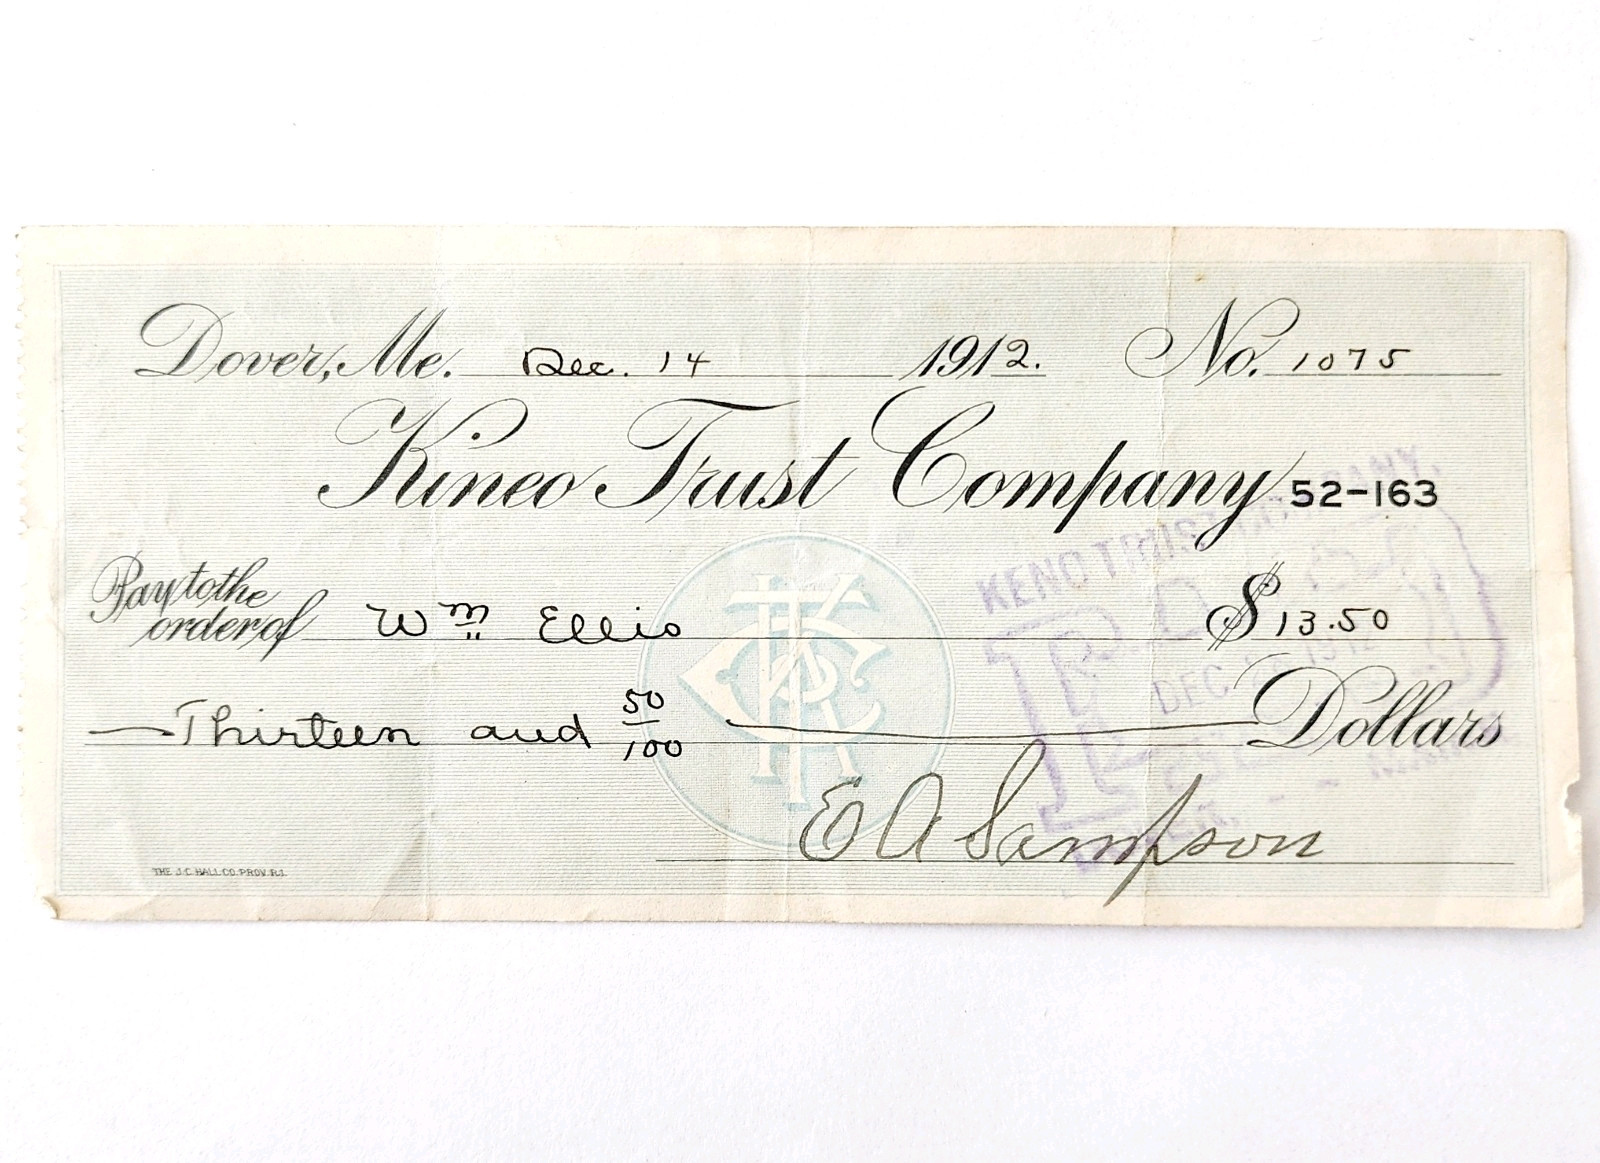 Dover, Me. Dec. 14 1912. No. 1075
Kineo Trust Company 52-163
KENO TRUST COMPANY.
Pay to the order of Wm Ellis $13.50
DEC 1912
Thirteen and 50/100 Dollars
E A Sampson
THE J.C. HALL CO. PROV. R.I.